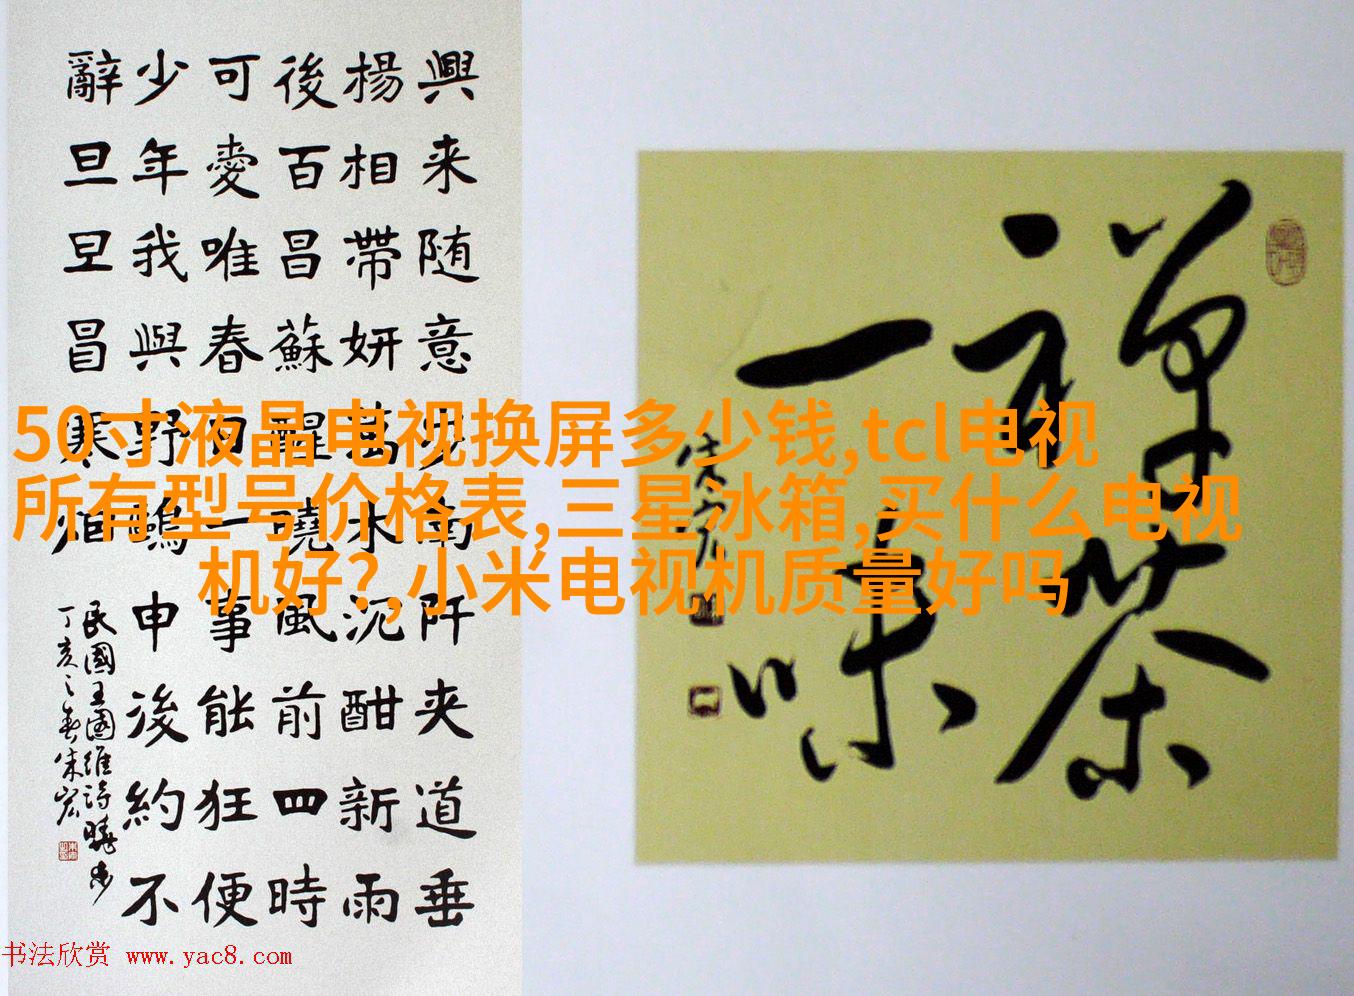 興来随意步南阡夹道垂
楊相帶妍萬木沉酣新雨
後百昌蘇醒曉風前四時
可愛唯春日一事能狂便
少年我與野鷗申後約不
辭旦旦冒寒烟
民國王國維詩曉步
丁亥之春朱宏
禅茶
一味
50寸液晶电视换屏多少钱,tcl电视
所有型号价格表,三星冰箱,买什么电视
机好?,小米电视机质量好吗
书法欣赏 www.yac8.com